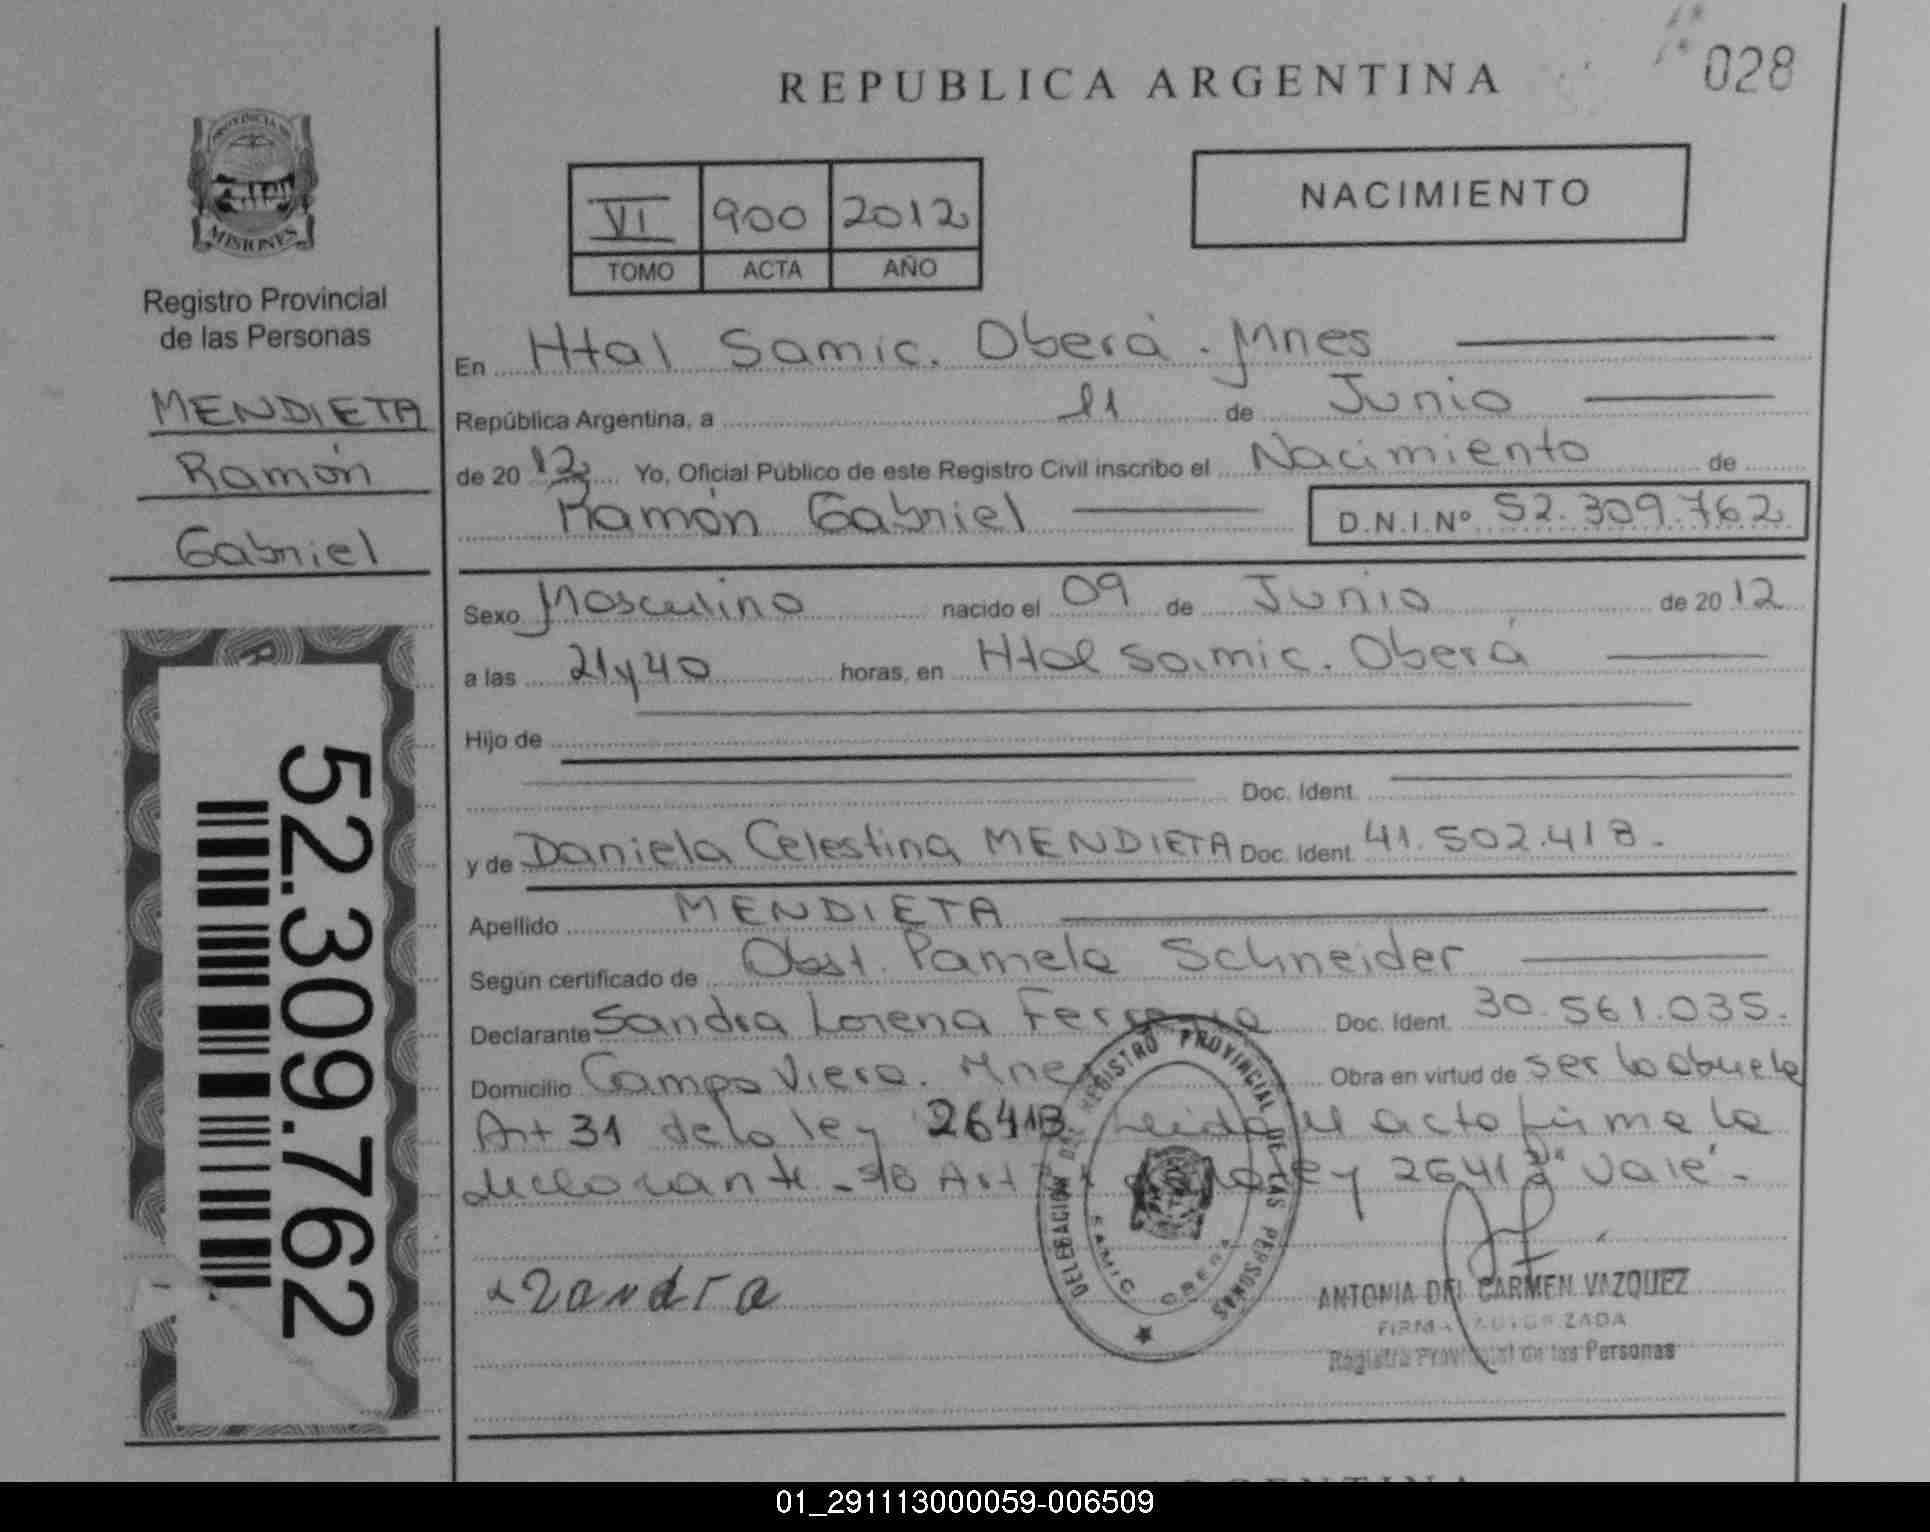 REPUBLICA ARGENTINA
028
PROVINCIA DE
MISIONES
Registro Provincial
de las Personas
MENDIETA
Ramón
Gabriel
52.309.762
VI 900 2012
TOMO ACTA AÑO
NACIMIENTO
En Htal Samic. Oberá. Mnes
República Argentina, a 11 de Junio
de 2012 Yo, Oficial Público de este Registro Civil inscribo el Nacimiento de
Ramón Gabriel D.N.I.Nº 52.309.762
Sexo Masculino nacido el 09 de Junio de 2012
a las 21y40 horas, en Htal Samic. Oberá
Hijo de
Doc. Ident.
y de Daniela Celestina MENDIETA Doc. Ident. 41.502.418.
Apellido MENDIETA
Según certificado de Obst. Pamela Schneider
Declarante Sandra Lorena Doc. Ident. 30.561.035.
Domicilio Campo Viera. Mnes Obra en virtud de ser la abuela
Art 31 de la ley 26413 Leida el acto firma la
declarante. S/B Art de la ley 26413 "Vale".-
DELEGACION DEL REGISTRO PROVINCIAL DE LAS PERSONAS
SAMIC OBERA
Sandra
ANTONIA DEL CARMEN VAZQUEZ
FIRMA AUTORIZADA
Registro Provincial de las Personas
01_291113000059-006509